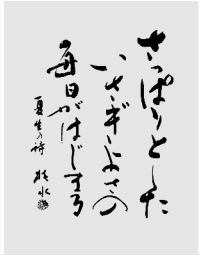 さっぱりとした
いさぎよさの
毎日がはじまる
夏生の詩